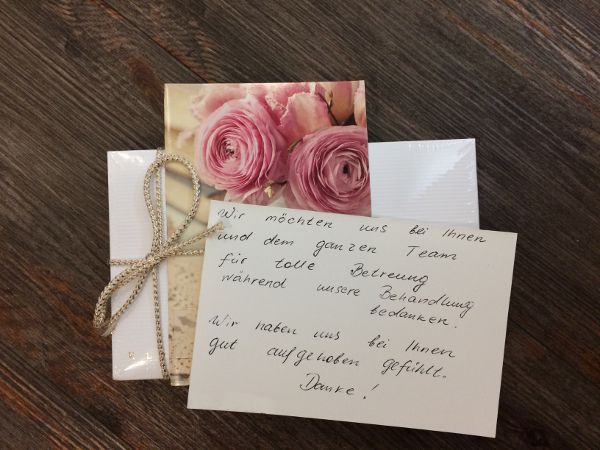 Wir möchten uns bei Ihnen
und dem ganzen Team
für tolle Betreung
während unsere Behandlung
bedanken.
Wir haben uns bei Ihnen
gut aufgehoben gefühlt.
Danke!